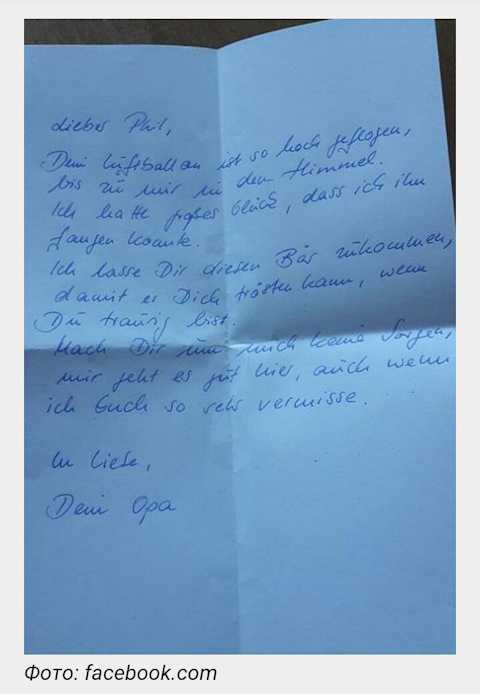 Lieber Phil,
Dein Luftballon ist so hoch geflogen,
bis zu mir in den Himmel.
Ich hatte großes Glück, dass ich ihn
fangen konnte.
Ich lasse Dir diesen Bär zukommen,
damit er Dich trösten kann, wenn
Du traurig bist.
Mach Dir um mich keine Sorgen,
mir geht es gut hier, auch wenn
ich Euch so sehr vermisse.
In Liebe,
Dein Opa
Фото: facebook.com